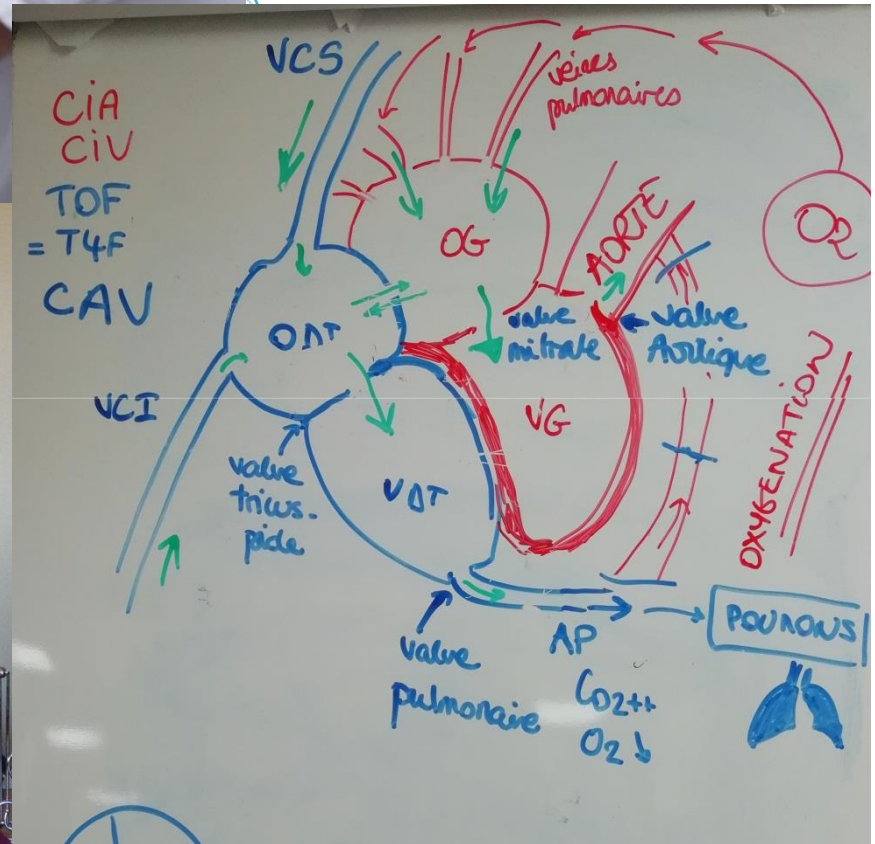 CiA
CiV
TOF
= T4F
CAV
VCS
veines
pulmonaires
O2
OG
AORTE
ODT
valve
mitrale
valve
Aortique
VCI
VG
OXYGENATION
valve
tricus-
pide
VDT
valve
pulmonaire
AP
CO2++
O2 ↓
POUMONS